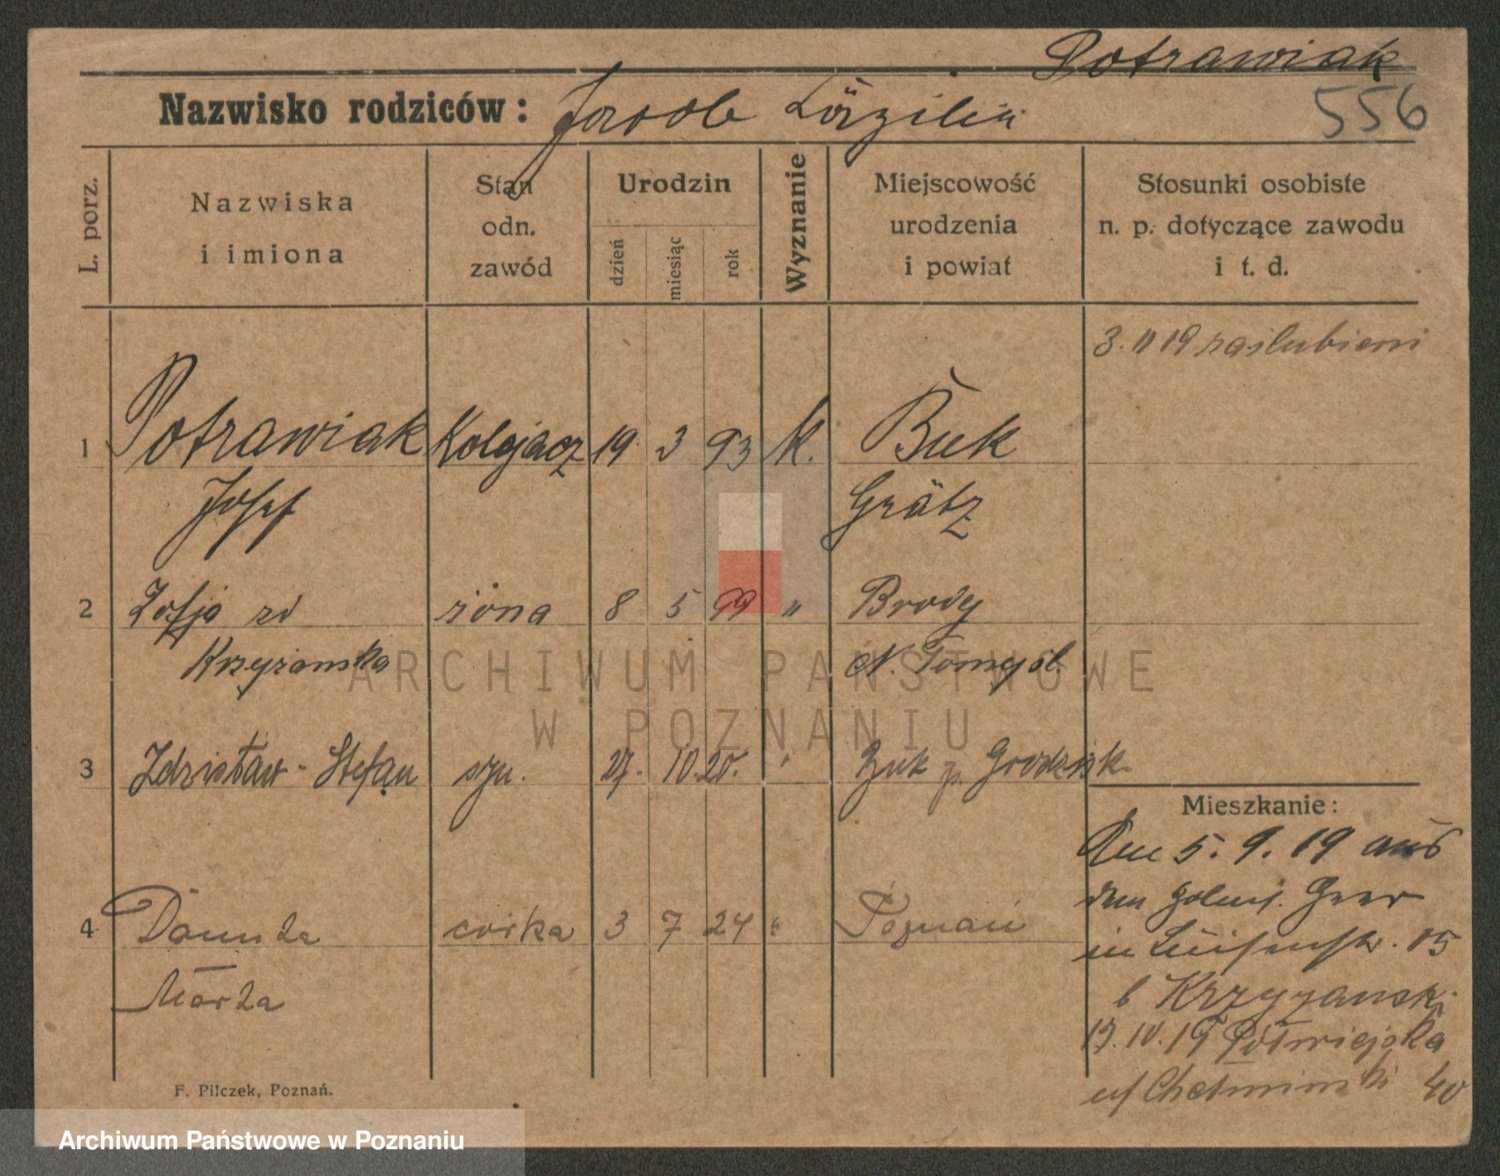 Potrawiak
Nazwisko rodziców: Jacob
556
L. porz.
Nazwiska
i imiona
Stan
odn.
zawód
Urodzin
dzień
miesiąc
rok
Wyznanie
Miejscowość
urodzenia
i powiat
Stosunki osobiste
n. p. dotyczące zawodu
i t. d.
3. 11 19 zaślubieni
1 Potrawiak Kolejacz 19. 3 93 k. Buk
Josef Grätz
2 Zofja zd żona 8 5 99 " Brody
Krzyżanska N. Tomyśl
ARCHIWUM PAŃSTWOWE
W POZNANIU
3 Zdzisław - Stefan syn. 27. 10. 20. " Buk p. Grodzisk
Mieszkanie:
Den 5. 9. 19 aus
dem Grev
4 Danuta córka 3 7 24 " Poznań
in Luisenstr. 15
Marta
b Krzyzanski
17. 10. 19 Półwiejska
40
F. Pilczek, Poznań.
Archiwum Państwowe w Poznaniu